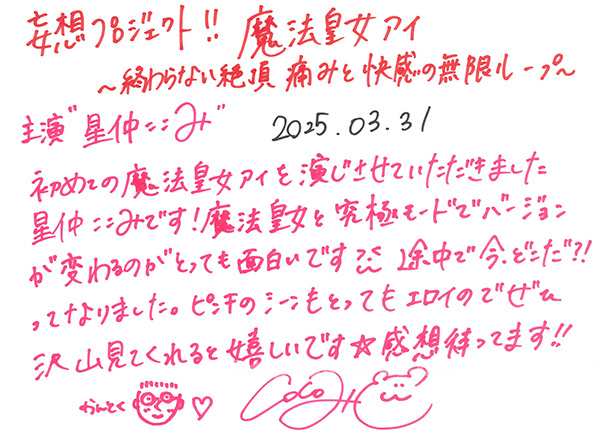 妄想プロジェクト!! 魔法皇女アイ
～終わらない絶頂 痛みと快感の無限ループ～
主演"星仲ここみ" 2025.03.31
初めての魔法皇女アイを演じさせていただきました
星仲ここみです!魔法皇女と究極モードでバージョン
が変わるのがとっても面白いです 途中で今、どこだ?!
ってなりました。ピンチのシーンもとってもエロイのでぜひ
沢山見てくれると嬉しいです☆感想待ってます!!
かんとく♡ COCOみ